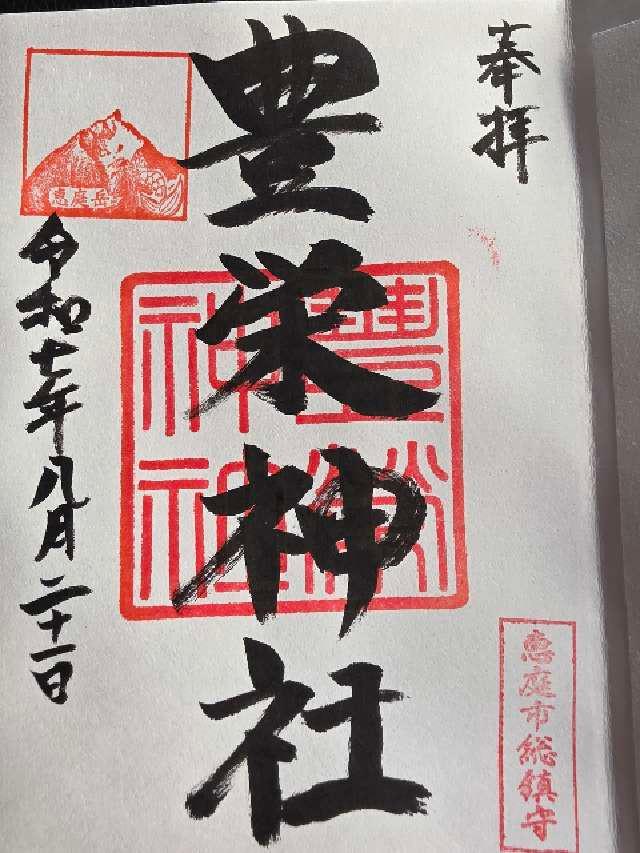 奉拝
恵庭市総鎮守
豊栄神社
豊栄
神社
恵庭岳
令和七年八月二十一日